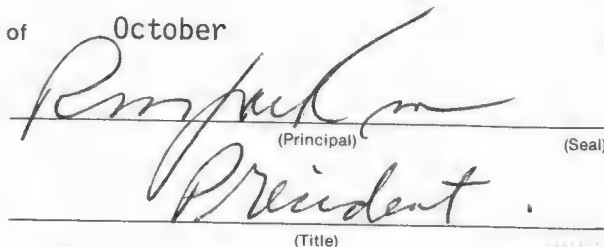 of October
(Principal) (Seal)
President.
(Title)